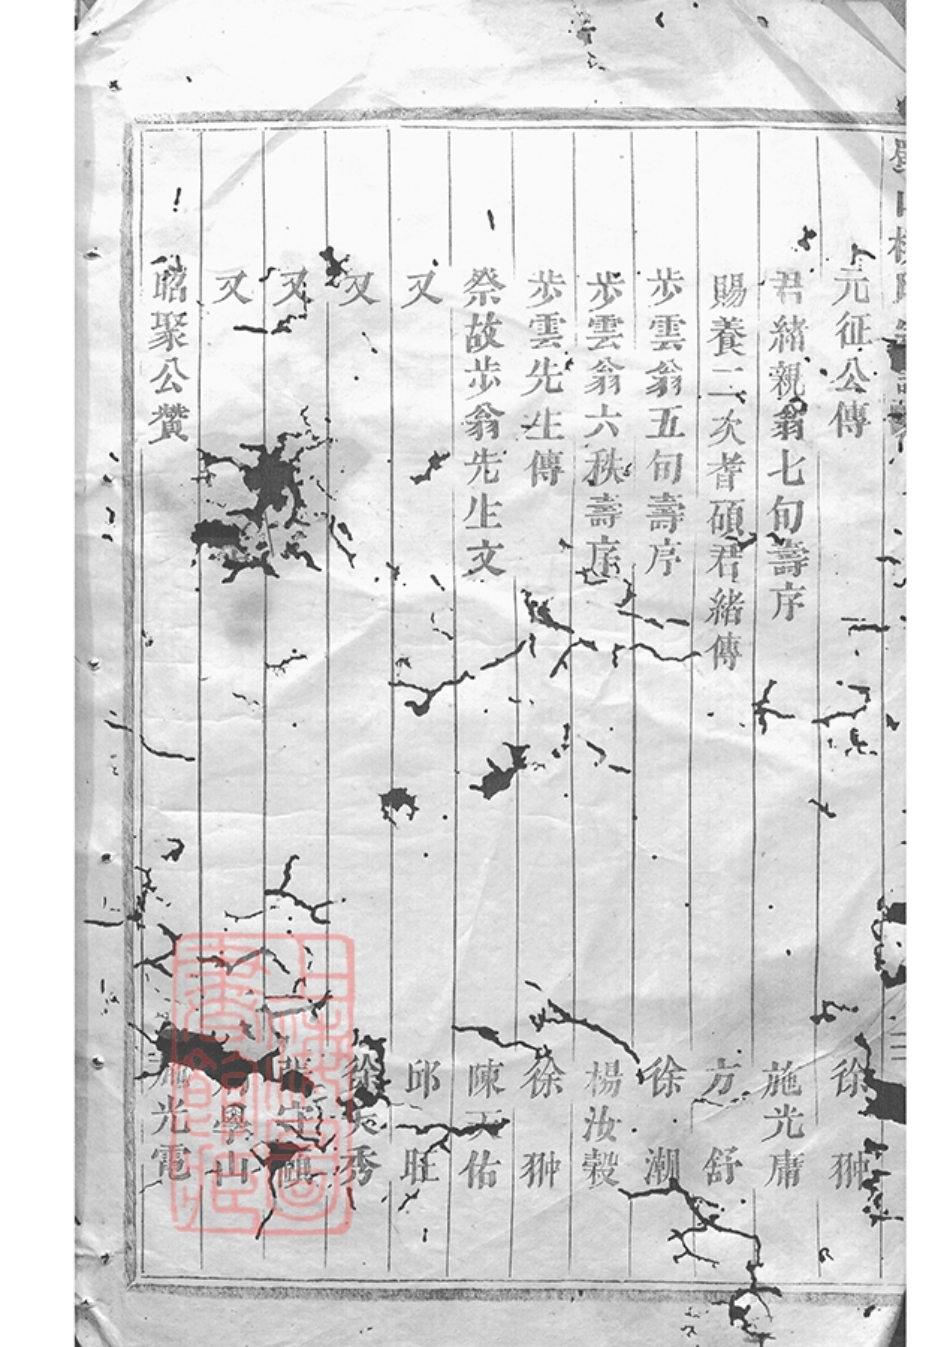 元征公傳 徐翀
君緒親翁七旬壽序 施光庸
賜養二次耆碩君緒傳 方舒
步雲翁五旬壽序 徐潮
步雲翁六秩壽序 楊汝穀
步雲先生傳 徐翀
祭故步翁先生文 陳天佑
又 邱旺
又 徐秀
又
又 學山
昭聚公贊 光電